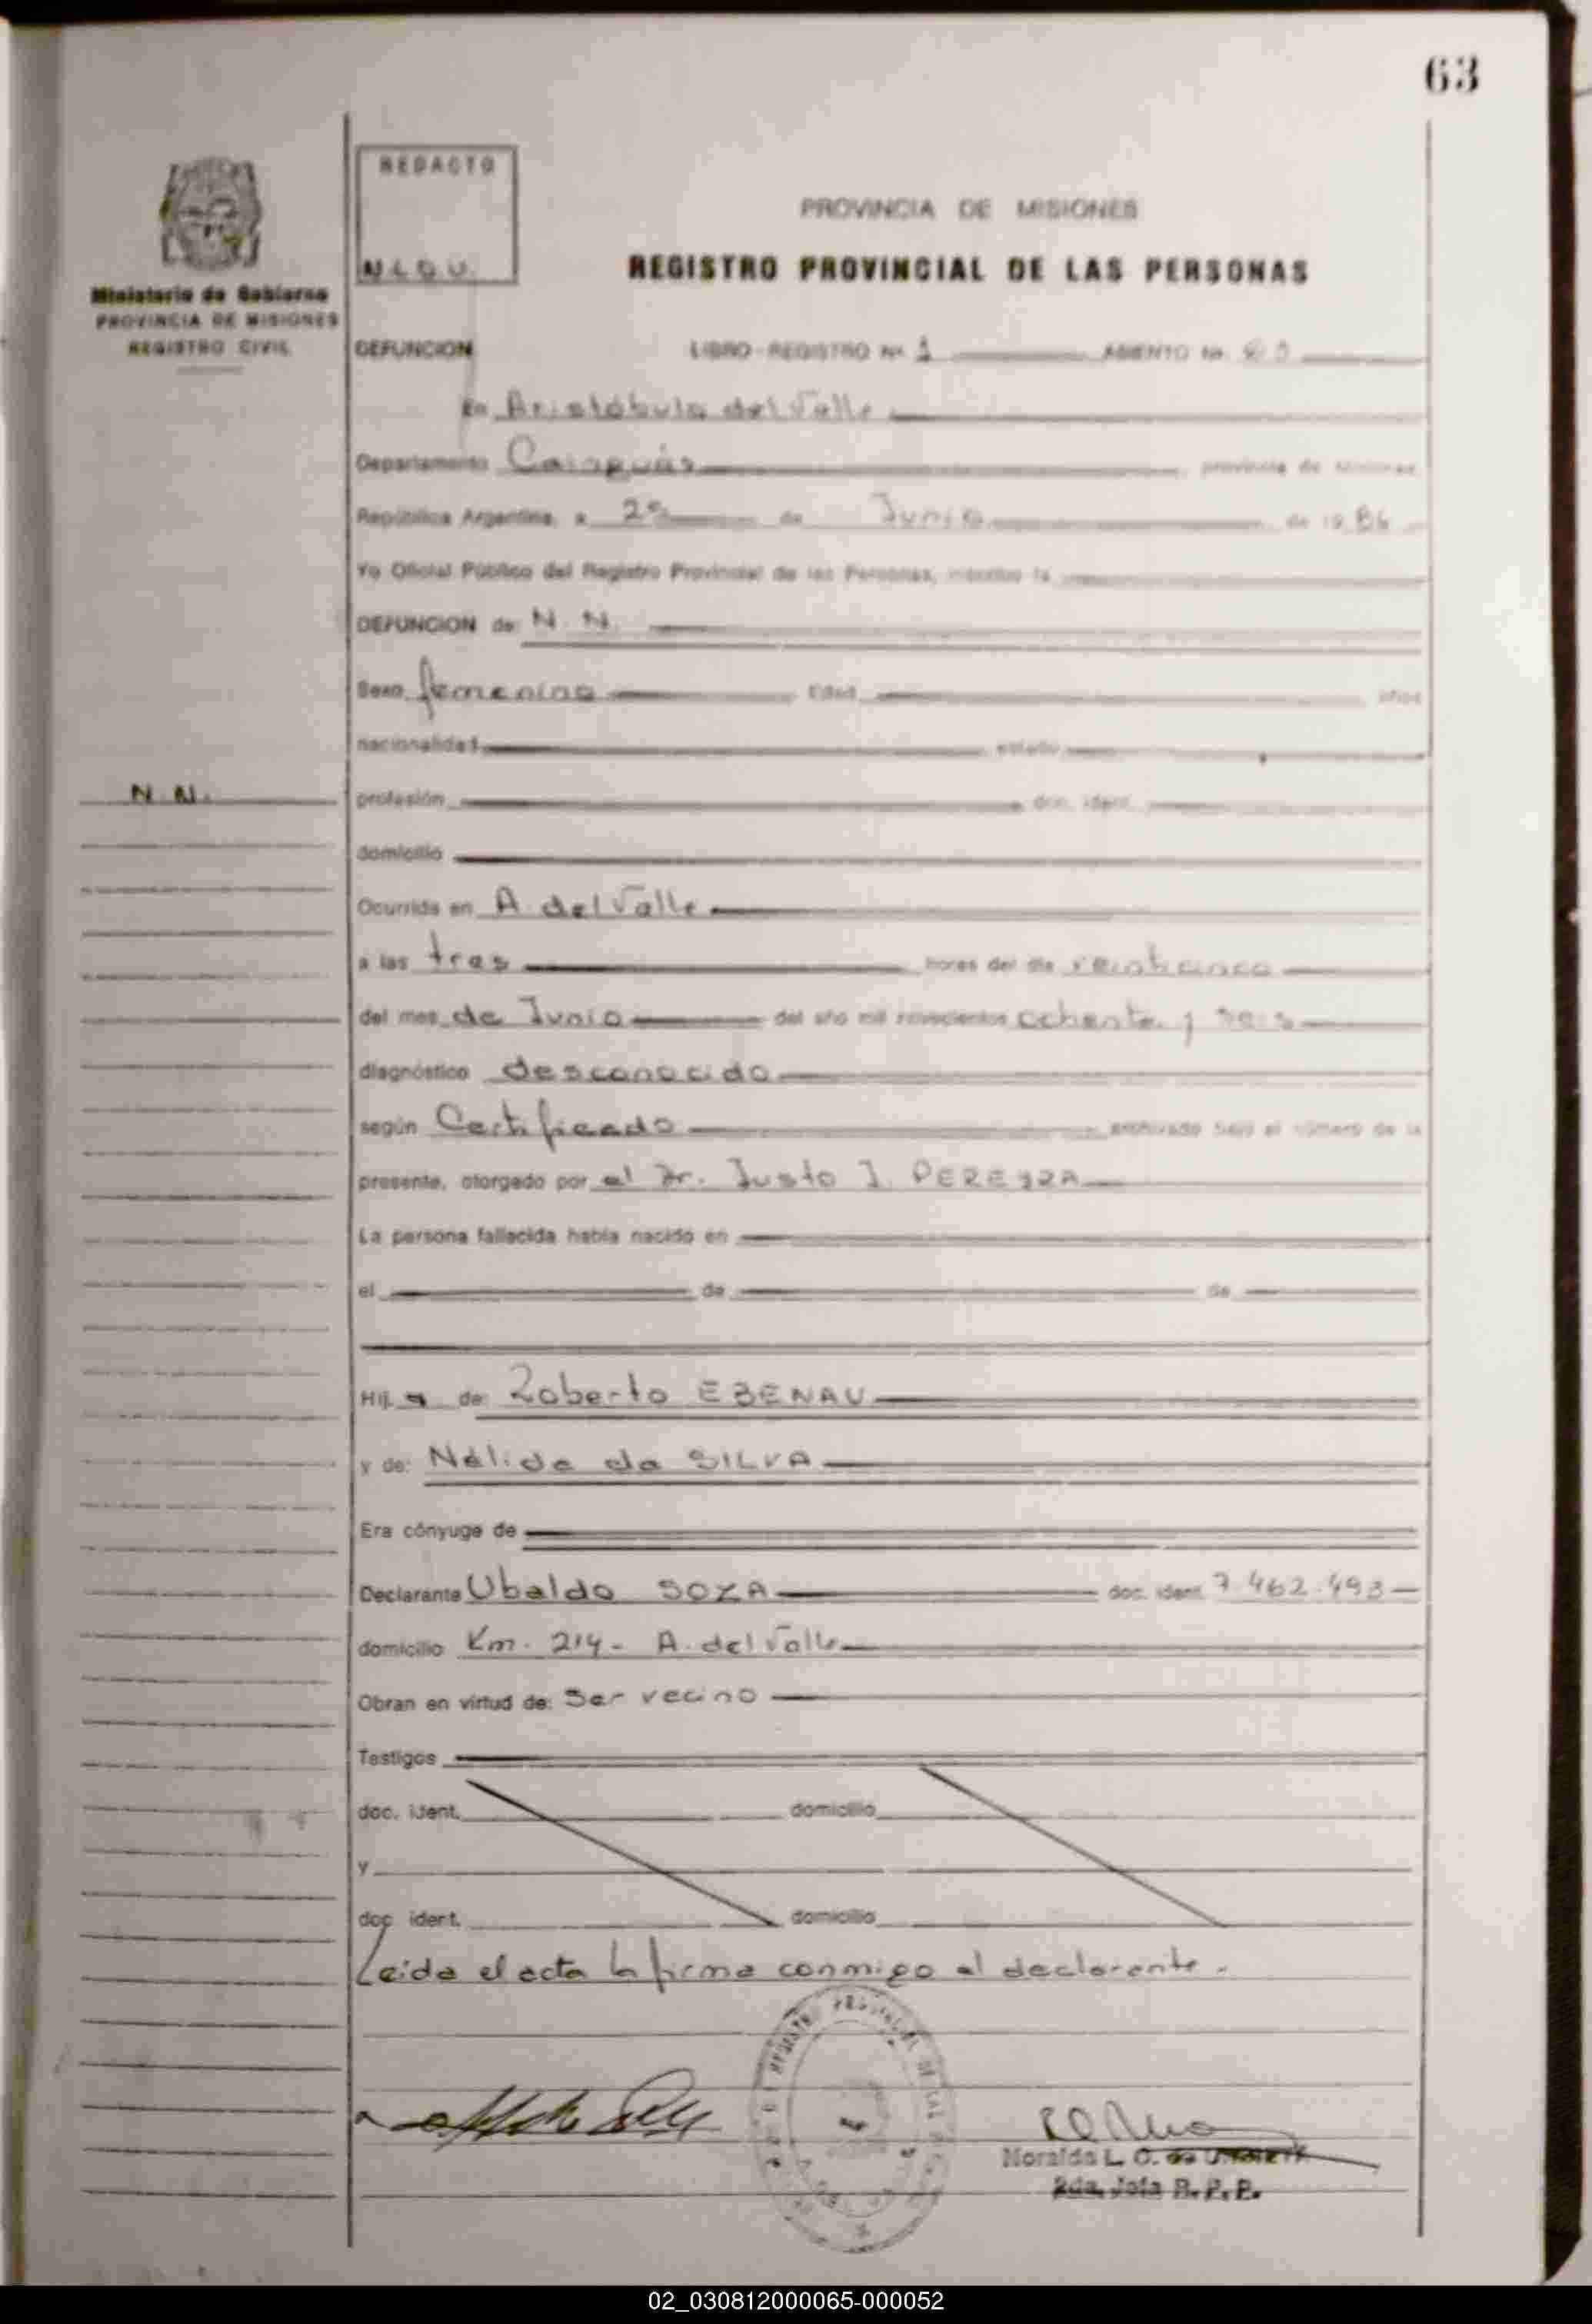 63
REDACTO
N L O U.
Ministerio de Gobierno
PROVINCIA DE MISIONES
REGISTRO CIVIL
PROVINCIA DE MISIONES
REGISTRO PROVINCIAL DE LAS PERSONAS
DEFUNCION LIBRO - REGISTRO Nº 1 ASIENTO Nº
En Aristóbulo del Valle
Departamento Cainguás provincia de Misiones
República Argentina, a de Junio de 19 86
Yo Oficial Público del Registro Provincial de las Personas, inscribo la
DEFUNCION de: N. N.
Sexo femenino Edad años
nacionalidad estado
N. N.
profesión doc. ident.
domicilio
Ocurrida en A. del Valle
a las tres horas del día veinticinco
del mes de Junio del año mil novecientos ochenta y seis
diagnóstico desconocido
según Certificado archivado bajo el número de la
presente, otorgado por el Dr. Justo J. PEREYRA
La persona fallecida había nacido en
el de de
Hij a de: Roberto EBENAU
y de: Nélida da SILVA
Era cónyuge de
Declarante Ubaldo SOZA doc. ident. 7.462.493
domicilio Km. 214 - A. del Valle
Obran en virtud de: Ser vecino
Testigos
doc. ident. domicilio
y
doc. ident. domicilio
Leida el acta la firma conmigo el declarante.
Noralda L. O. de
2da. Jefa R. P. P.
02_030812000065-000052